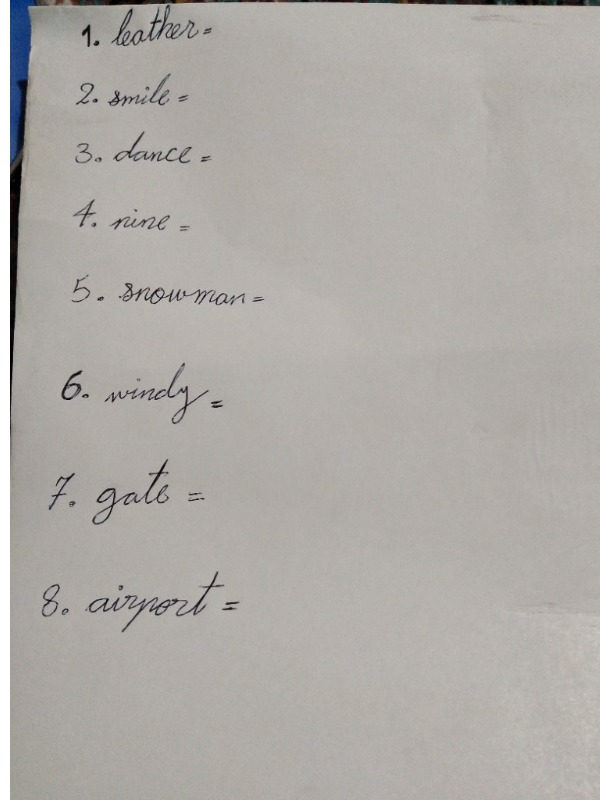 1. leather =
2. smile =
3. dance =
4. nine =
5. snowman =
6. windy =
7. gate =
8. airport =